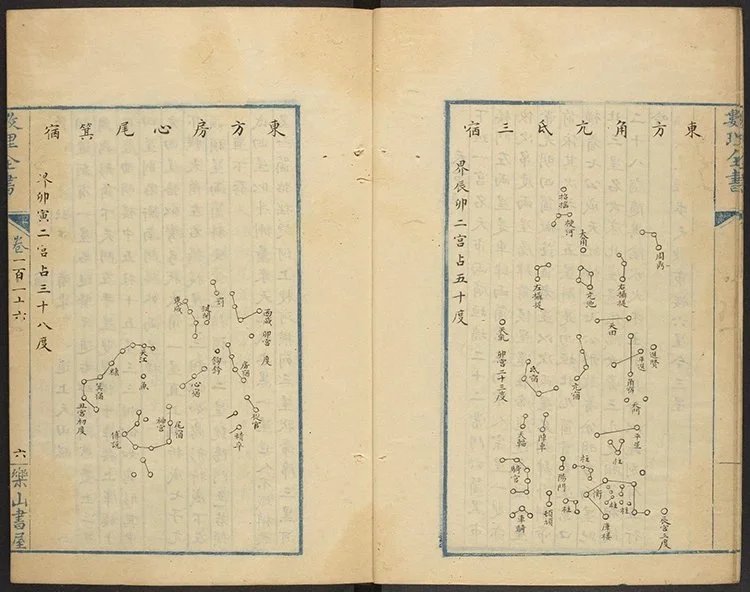 數理全書
東方角亢氐三宿
界辰卯二宮占五十度
招搖
梗河
大角
周鼎
左攝提
亢池
右攝提
天田
天乳
卯宮二十三度
平道
進賢
氐宿
亢宿
角宿
天門
天輻
陣車
平星
柱
騎官
陽門
柱
衡
柱
柱
車騎
頓頑
柱
庫樓
辰宮三度
東方房心尾箕宿
界卯寅二宮占三十八度
罰
東咸
鍵閉
西咸
卯宮
度
天江
鉤鈐
房宿
糠
魚
心宿
箕宿
丑宮初度
從官
傅說
神宮
尾宿
積卒
數理全書
卷一百一十六
六
樂山書屋